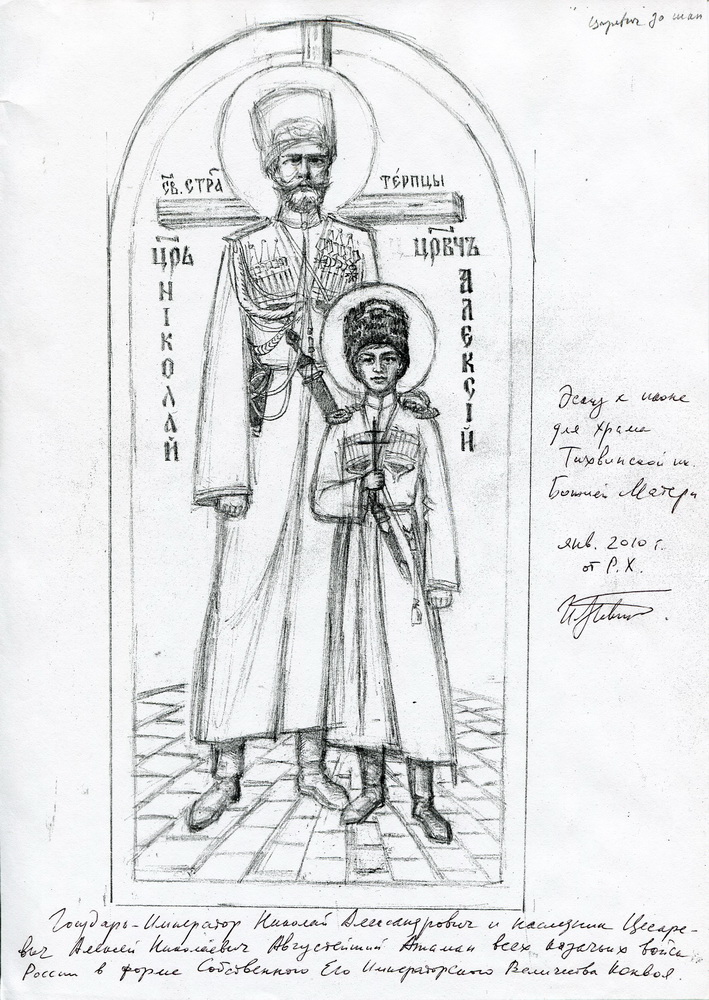 Царевич до шап
СВ. СТРА ТЕРПЦЫ
ЦРЬ
НІКОЛАЙ
ЦРВЧЪ
АЛЕКСІЙ
Эскиз к иконе
для храма
Тихвинской ик.
Божией Матери
янв. 2010 г.
от Р.Х.
Государь-Император Николай Александрович и наследник Цесаре-
вич Алексей Николаевич Августейший Атаман всех казачьих войск
России в форме Собственного Его Императорского Величества Конвоя.